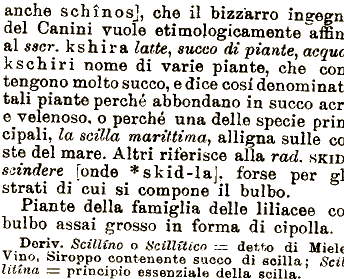 anche schînos], che il bizzarro ingegn
del Canini vuole etimologicamente affin
al sscr. kshira latte, succo di piante, acqua
kschiri nome di varie piante, che con
tengono molto succo, e dice cosí denominat
tali piante perché abbondano in succo acr
e velenoso, o perché una delle specie prin
cipali, la scilla marittima, alligna sulle co
ste del mare. Altri riferisce alla rad. SKID
scindere [onde *skid-la], forse per gl
strati di cui si compone il bulbo.
Piante della famiglia delle liliacee co
bulbo assai grosso in forma di cipolla.
Deriv. Scillíno o Scillítico = detto di Miele
Vino, Siroppo contenente succo di scilla; Scil
litína = principio essenziale della scilla.